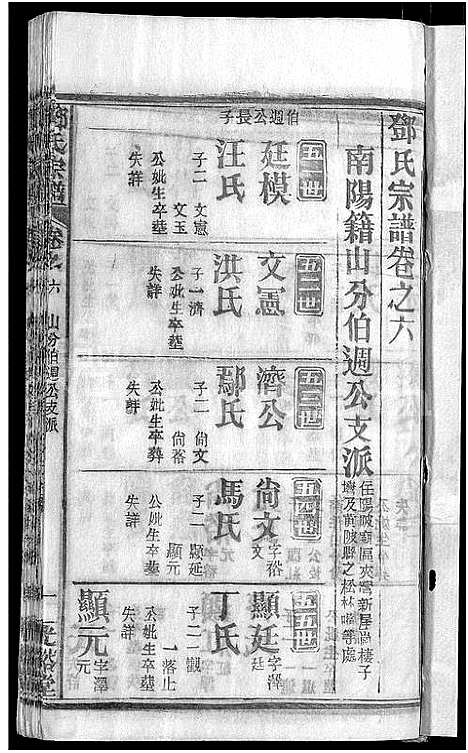 鄧氏宗譜卷之六
南陽籍山分伯週公支派
伯週公長子
五一世
廷模
汪氏
子二 文憲
文玉
公妣生卒塟
失詳
五二世
文憲
洪氏
子一濟
公妣生卒塟
失詳
五三世
濟公
鄢氏
子二 尙文
尙裕
公妣生卒葬
失詳
五四世
尙文 字裕文
馬氏
子二 顯延
顯元
公妣生卒塟
失詳
五五世
顯延 字澤廷
丁氏
子二 一觀
一落止
公妣生卒塟
失詳
顯元 字澤元
鄧氏宗譜
卷之六
山分伯週公支派
一